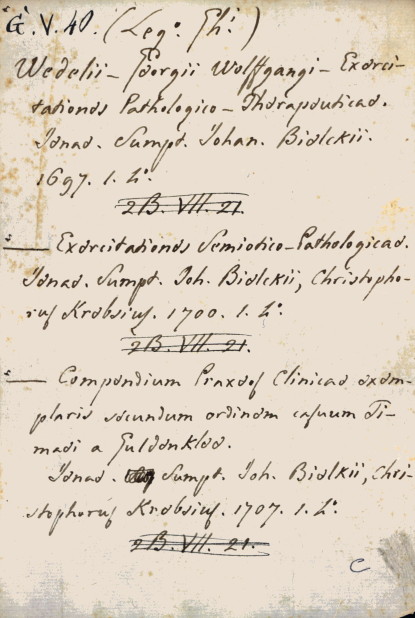 G. V. 40. (Leg.° Th.i)
Wedelii – Georgii Wolffgangi – Exerci-
tationes Pathologico – Therapeuticae.
Jenae. Sumpt. Johan. Bielckii.
1697. 1. L°
2B. VII. 21.
— Exercitationes Semiotico-Pathologicae.
Jenae. Sumpt. Joh. Bielckii, Christopho-
ruſ Krebsiuſ. 1700. 1. L°
2B. VII. 21.
— Compendium Praxeoſ Clinicae exem-
plaris secundum ordinem caſuum Ti-
maei a Guldenklee.
Jenae. Sumpt. Joh. Bielkii, Chri-
stophoruſ Krebsiuſ. 1707. 1. L°
2B. VII. 21.
C